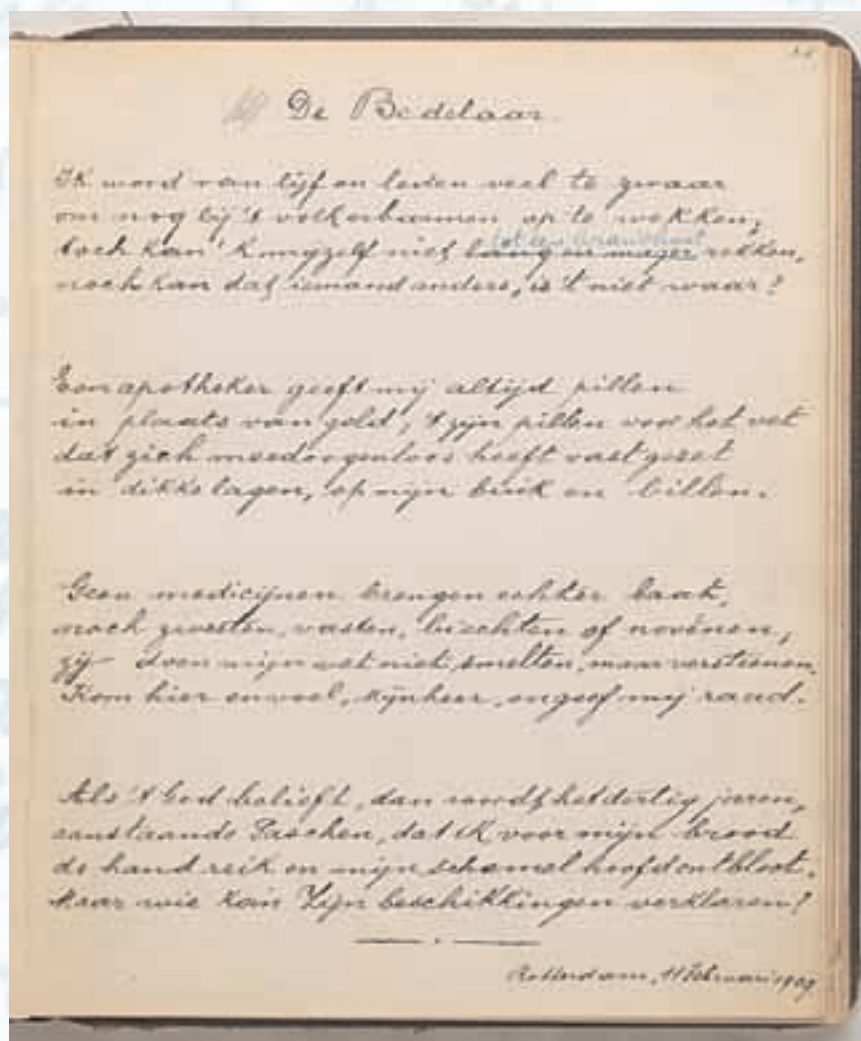 De Bedelaar
Ik word van lijf en leden veel te zwaar
om nog bij 't volk erbarmen op te wekken;
toch kan 'k mijzelf niet lang en mager rekken,
noch kan dat iemand anders, is 't niet waar?
Een apotheker geeft mij altijd pillen
in plaats van geld; 't zijn pillen voor het vet
dat zich meedoogenloos heeft vastgezet
in dikke lagen, op mijn buik en billen.
Geen medicijnen brengen echter baat,
noch zweeten, vasten, biechten of novenen,
zij doen mijn vet niet smelten, maar versteenen.
Kom hier en voel, mijnheer, en geef mij raad.
Als 't God belieft, dan wordt het dertig jaren,
aanstaande Paschen, dat ik voor mijn brood
de hand reik en mijn schamel hoofd ontbloot.
Maar wie kan Zijn beschikkingen verklaren?
Rotterdam, 11 Februari 1909